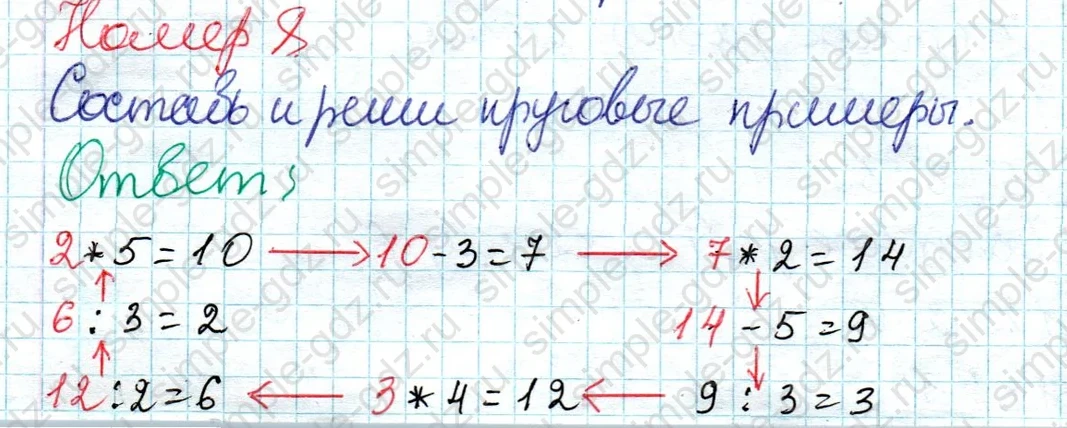 Номер 8
Составь и реши круговые примеры.
Ответ:
2 * 5 = 10 → 10 - 3 = 7 → 7 * 2 = 14
6 : 3 = 2 14 - 5 = 9
12 : 2 = 6 ← 3 * 4 = 12 ← 9 : 3 = 3
simple-gdz.ru